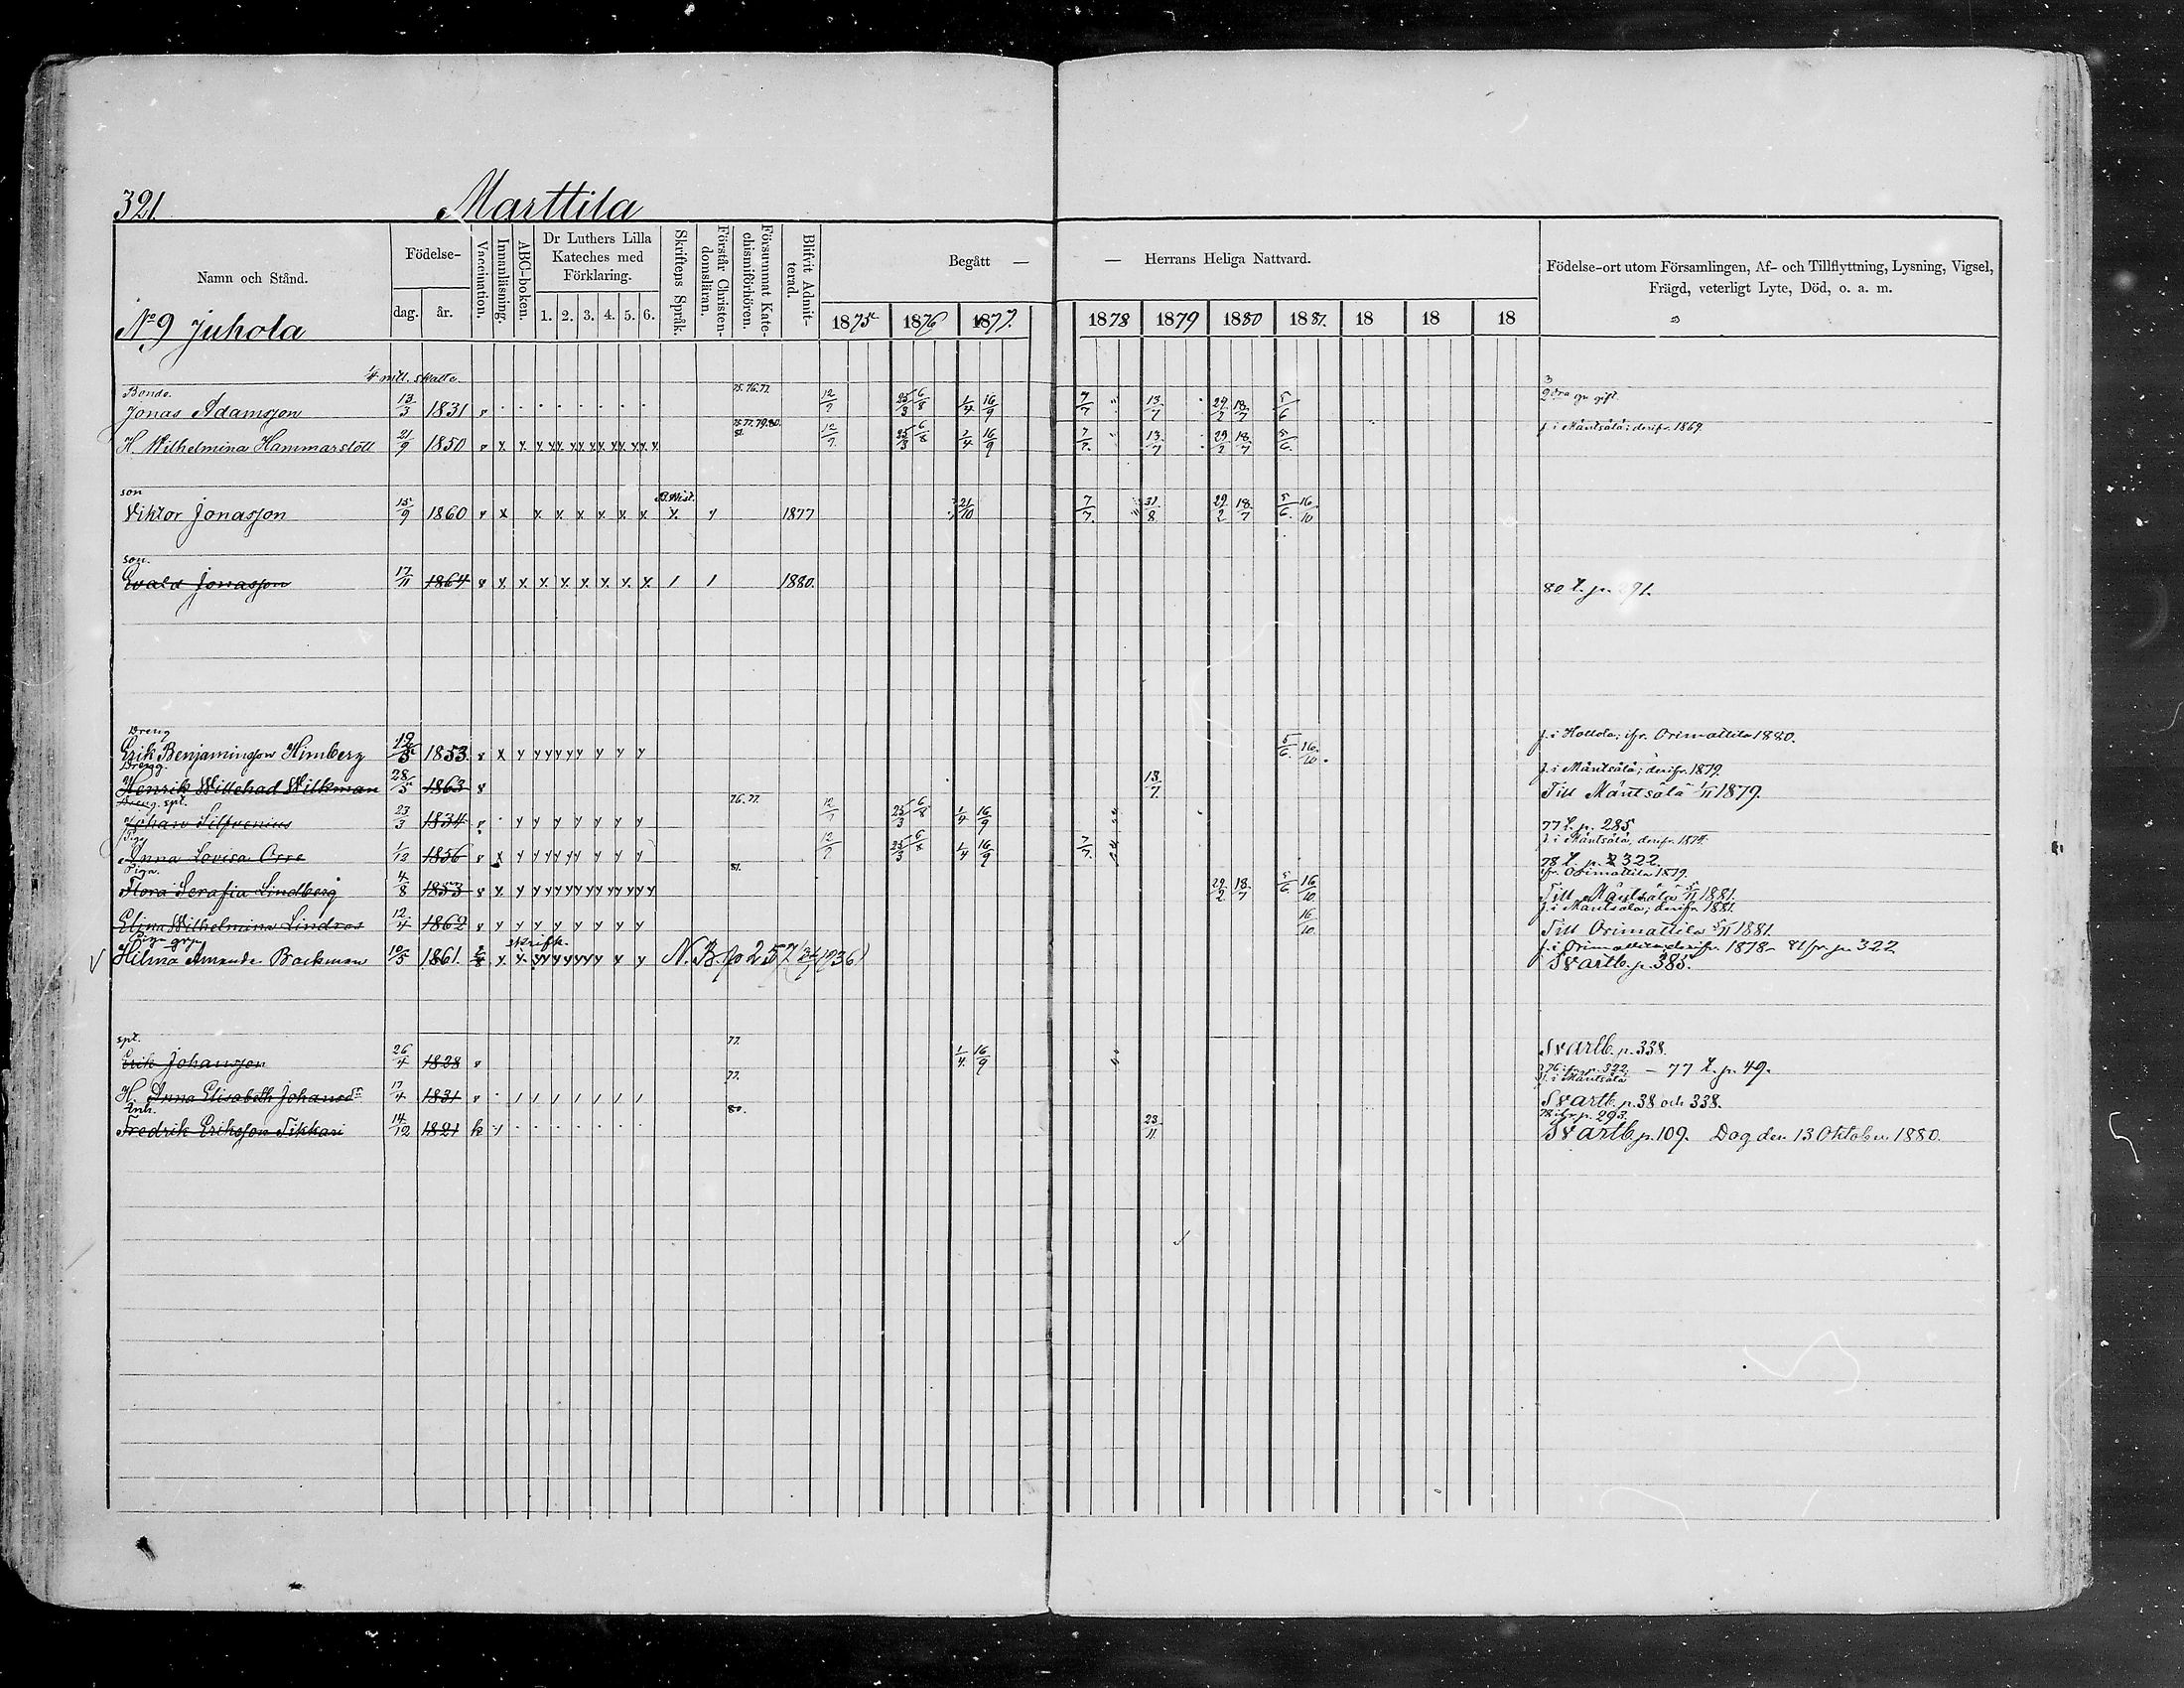 321. Marttila
Namn och Stånd. Födelse- dag. år. Vaccination. Innanläsning. ABC-boken. Dr Luthers Lilla Kateches med Förklaring. 1. 2. 3. 4. 5. 6. Skriftens Språk. Förstår Christendomsläran. Försummat Katechismiförhören. Blifvit Admitterad. Begått — — Herrans Heliga Nattvard. Födelse-ort utom Församlingen, Af- och Tillflyttning, Lysning, Vigsel, Frägd, veterligt Lyte, Död, o. a. m.
1875 1876 1877. 1878 1879 1880 1881. 18 18 18
No 9 Juhola
1/4 mtl. skatte.
Bonde. 75. 76. 77.
Jonas Adamsson 13/3 1831 12/9 25/3 6/8 1/4 16/9 7/7 13/7 29/2 18/7 5/6
75 77. 79. 80. 81.
H. Wilhelmina Hammarstölt 21/9 1850 12/9 25/3 6/8 1/4 16/9 7/7. 13/7 29/2 18/7 5/6. f. i Mäntsälä; derifr. 1869
son
Viktor Jonasson 15/9 1860 1877 21/10 7/7. 31/8 29/2 18/7 5/6. 16/10
son.
Evald Jonasson 17/11 1864 1880. 80 t. p. 291.
Dreng
Erik Benjaminsson Himberg 19/5 1853. 5/6. 16/10. f. i Hollola; ifr. Orimattila 1880.
Dreng. f. i Mäntsälä; derifr. 1879.
Henrik Willehad Wilkman 28/5 1863 13/7. Till Mäntsälä 1/11 1879.
Dreng. spt. 76. 77.
Johan Silfvenius 23/3 1834 12/9 25/3 6/8 1/4 16/9 77 t. p. 285.
Piga f. i Mäntsälä, derifr. 1874.
Anna Lovisa Orre 1/12 1856 12/9 25/3 6/8 1/4 16/9 7/7. 78 t. p. 322.
Piga. 81. ifr. Orimattila 1879.
Flora Serafia Lindberg 4/8 1853 29/2 18/7 5/6. 16/10. Till Mäntsälä 5/11 1881.
f. i Mäntsälä; derifr. 1881.
Elina Wilhelmina Lindros 12/4 1862 16/10. Till Orimattila 5/11 1881.
Piga skrifk. f. i Orimattila derifr. 1878 - 81 fr. p. 322
Hilma Amanda Backman 10/5 1861. N. B. p 257 Svartb. p. 385.
spt. 77. Svartb. p. 338.
Erik Johansson 26/4 1828 1/4. 16/9 76 fr. p. 322 — 77 t. p. 49.
77. f. i Mäntsälä
H. Anna Elisabeth Johansdr 17/4 1831 Svartb. p. 38 och 338.
Enk. 80. 78 ifr p. 293.
Fredrik Eriksson Sikkari 14/12 1821 k 23/11 Svartb. p. 109. Dog den 13 Oktober 1880.